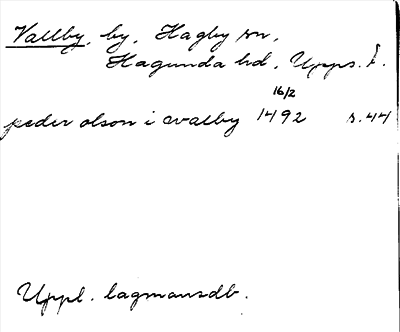 Vallby, by, Hagby sn,
Hagunda hd, Upps. l.
16/2
peder olson i walby 1492 s. 44
Uppl. lagmansdb.